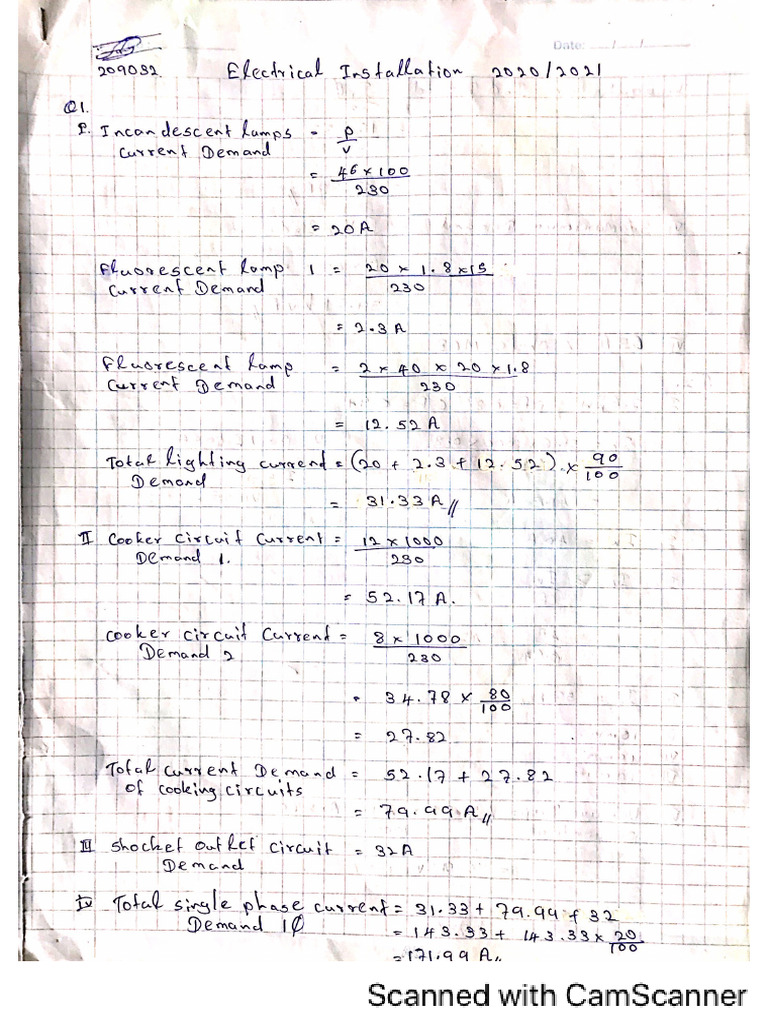 Date: __/__/____
209032 Electrical Installation 2020/2021
Q1.
I. Incandescent lamps = P/V
Current Demand
= 46 × 100 / 230
= 20 A
Fluorescent lamp 1 = 20 × 1.8 × 15 / 230
Current Demand
= 2.3 A
Fluorescent lamp = 2 × 40 × 20 × 1.8 / 230
Current Demand
= 12.52 A
Total lighting current = (20 + 2.3 + 12.52) × 90/100
Demand
= 31.33 A //
II Cooker circuit Current = 12 × 1000 / 230
Demand 1.
= 52.17 A.
Cooker circuit Current = 8 × 1000 / 230
Demand 2
= 34.78 × 80/100
= 27.82
Total current Demand = 52.17 + 27.82
of cooking circuits
= 79.99 A //
III Shocket outlet circuit = 32A
Demand
IV Total single phase current = 31.33 + 79.99 + 32
Demand 1ϕ = 143.33 + 143.33 × 20/100
= 171.99 A //
Scanned with CamScanner